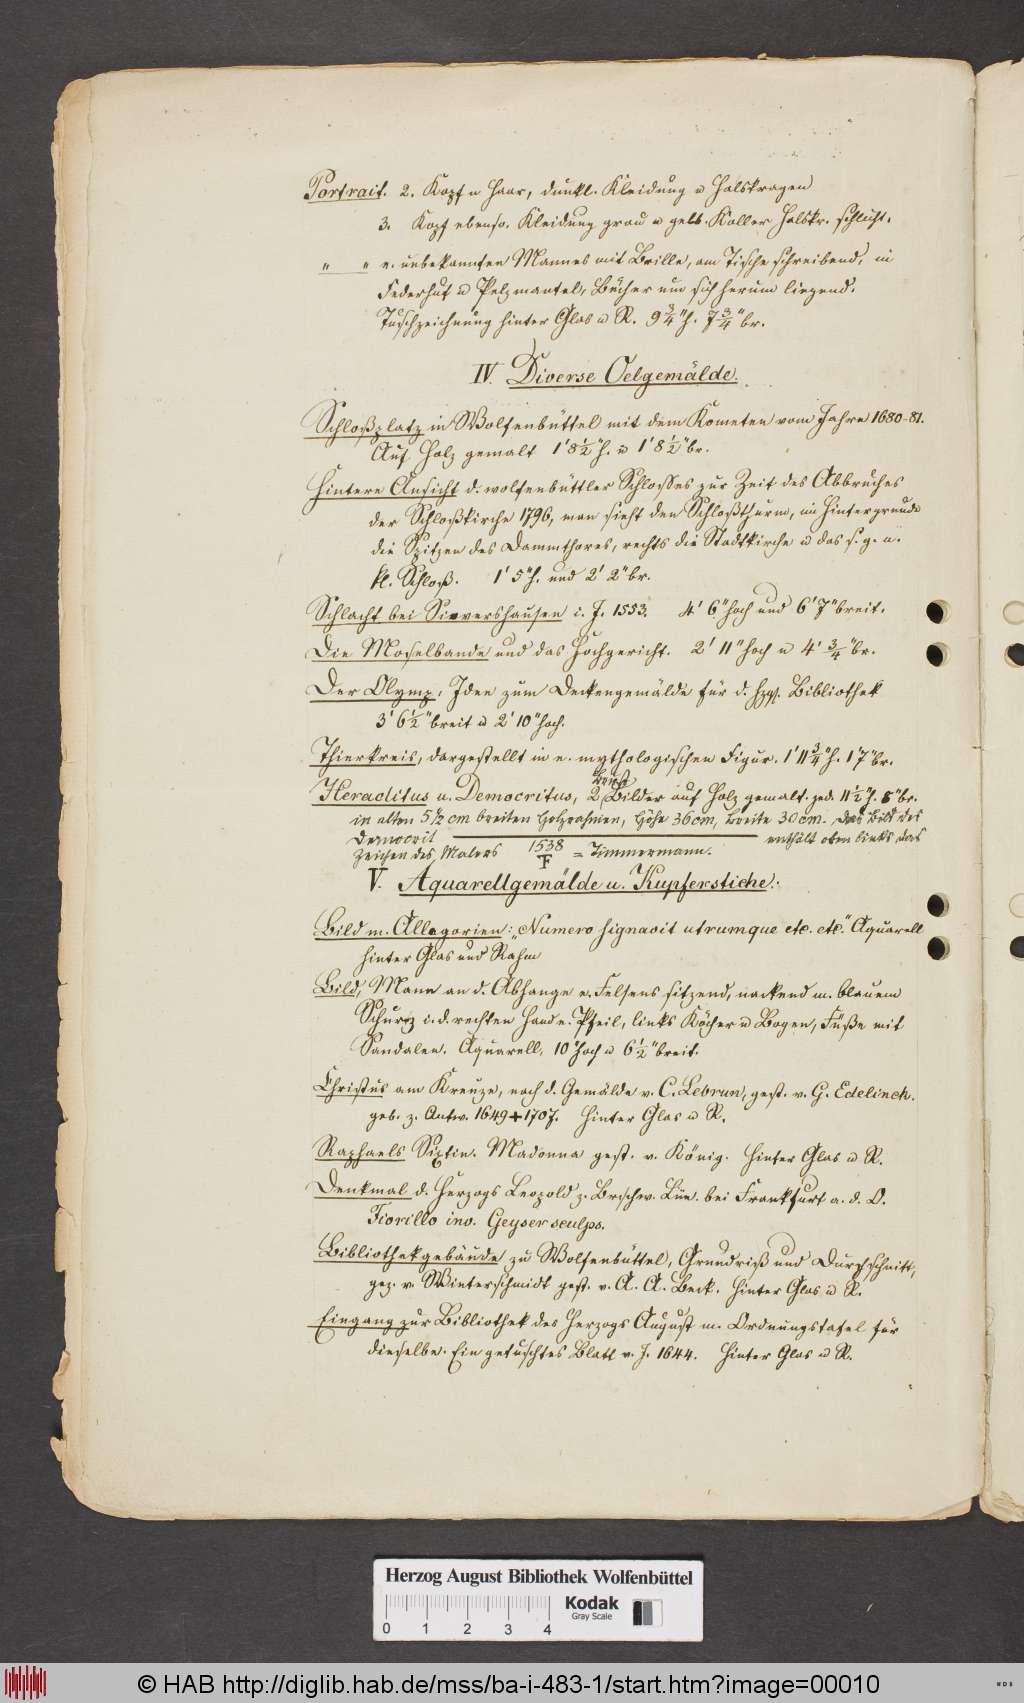 Portrait. 2. Kopf u Haar, dunkl. Kleidung u Halskragen
3. Kopf ebenso. Kleidung grau u gelb. Koller Halskr. schlicht.
" " e. unbekannten Mannes mit Brille, am Tische schreibend, in
Federhut u Pelzmantel, Bücher um sich herum liegend.
Tuschzeichnung hinter Glas u R. 9 3/4" h. 7 3/4" br.
IV. Diverse Oelgemälde.
Schloßplatz in Wolfenbüttel mit dem Kometen vom Jahre 1680-81.
Auf Holz gemalt 1' 8 1/2" h. u 1' 8 1/2" br.
Hintere Ansicht d. wolfenbüttler Schlosses zur Zeit des Abbruches
der Schloßkirche 1796, man sieht den Schloßthurm, im Hintergrunde
die Spitzen des Dammthores, rechts die Stadtkirche u das s. g. n.
kl. Schloß. 1' 5" h. und 2' 2" br.
Schlacht bei Sievershausen i. J. 1553. 4' 6" hoch und 6' 7" breit.
Die Moselbande und das Hochgericht. 2' 11" hoch u 4' 3/4" br.
Der Olymp, Idee zum Deckengemälde für d. hzgl. Bibliothek
3' 6 1/2" breit u 2' 10" hoch.
Thierkreis, dargestellt in e. mythologischen Figur. 1' 11 3/4" h. 1' 7" br.
Heraclitus u. Democritus, 2 Brust Bilder auf Holz gemalt. jed. 11 1/2" h. 8" br.
in alten 5 1/2 cm breiten Holzrahmen, Höhe 36 cm, Breite 30 cm. Das Bild des
Democrit enthält oben links das
Zeichen des Malers 1538 F = Timmermann.
V. Aquarellgemälde u. Kupferstiche.
Bild m. Allegorien: „Numero signavit utrumque etc. etc." Aquarell
hinter Glas und Rahm
Bild, Mann an d. Abhange e. Felsens sitzend, nackend m. blauem
Schurz i. d. rechten Hand e. Pfeil, links Köcher u Bogen, Füße mit
Sandalen. Aquarell, 10" hoch u 6 1/2" breit.
Christus am Kreuze, nach d. Gemälde v. C. Lebrun, gest. v. G. Edelinck.
geb. z. Antw. 1649 + 1707. Hinter Glas u R.
Raphaels Sixtin. Madonna gest. v. König. Hinter Glas u R.
Denkmal d. Herzogs Leopold z. Brschw. Lün. bei Frankfurt a. d. O.
Fiorillo inv. Geyser sculps.
Bibliothekgebäude zu Wolfenbüttel, Grundriß und Durchschnitt,
gez. v. Winterschmidt gest. v. A. A. Beck. Hinter Glas u R.
Eingang zur Bibliothek des Herzogs August m. Ordnungstafel für
dieselbe. Ein getuschtes Blatt v. J. 1644. Hinter Glas u R.
Herzog August Bibliothek Wolfenbüttel
Kodak
Gray Scale
0 1 2 3 4
© HAB http://diglib.hab.de/mss/ba-i-483-1/start.htm?image=00010